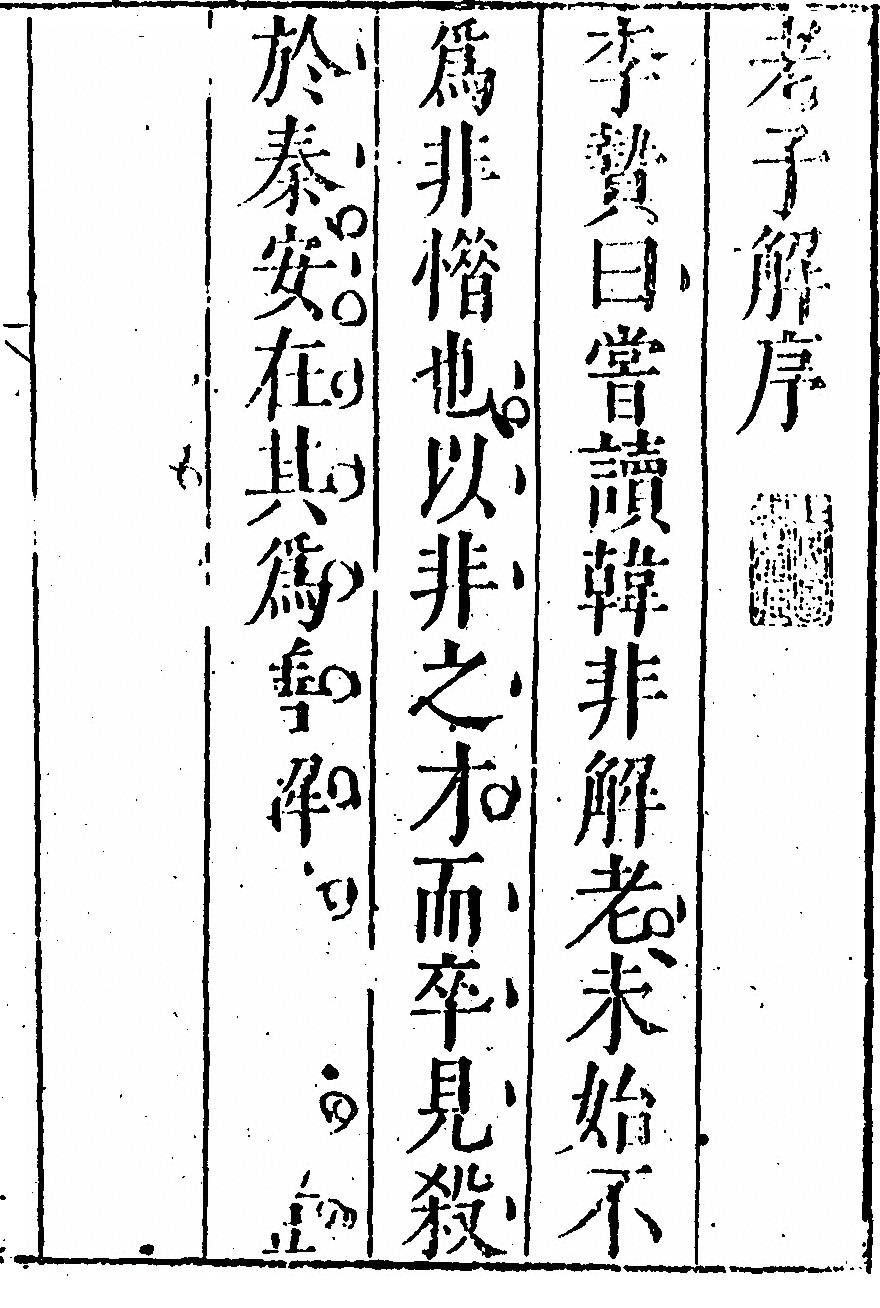 老子解序
李贄曰嘗讀韓非解老未始不
爲非惜也以非之才而卒見殺
於秦安在其爲善解